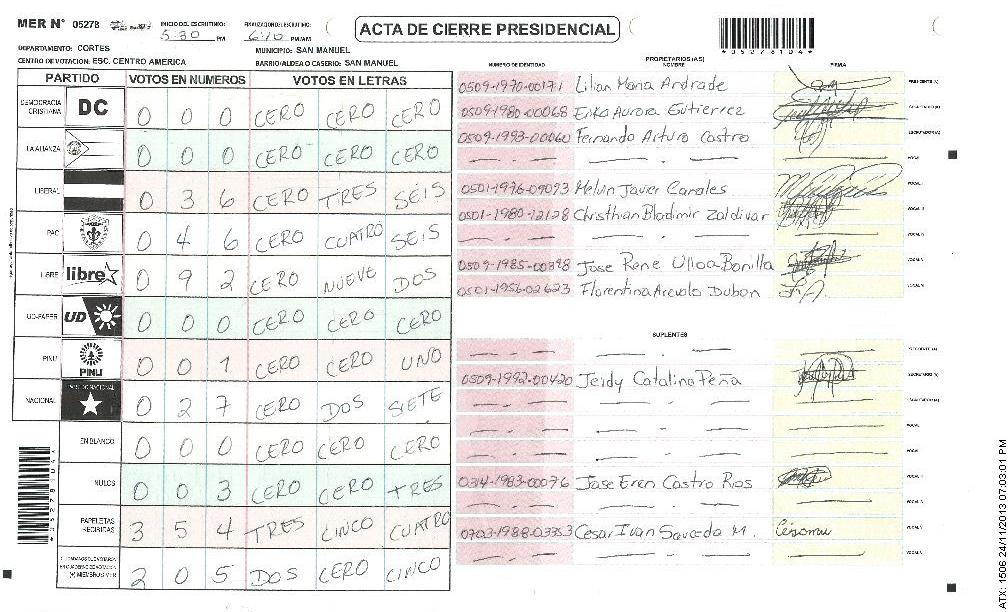 MER N° 05278
INICIO DEL ESCRUTINIO: 5:30 PM
FINALIZACION DEL ESCRUTINIO: 6:10 PM/AM
ACTA DE CIERRE PRESIDENCIAL
*05278104*
DEPARTAMENTO: CORTES
MUNICIPIO: SAN MANUEL
CENTRO DE VOTACION: ESC. CENTRO AMERICA
BARRIO/ALDEA O CASERIO: SAN MANUEL
PARTIDO VOTOS EN NUMEROS VOTOS EN LETRAS
DEMOCRACIA CRISTIANA DC 0 0 0 CERO CERO CERO
LA ALIANZA 0 0 0 CERO CERO CERO
LIBERAL 0 3 6 CERO TRES SEIS
PAC 0 4 6 CERO CUATRO SEIS
LIBRE libre 0 9 2 CERO NUEVE DOS
UD-FAPER UD 0 0 0 CERO CERO CERO
PINU PINU 0 0 1 CERO CERO UNO
NACIONAL PARTIDO NACIONAL 0 2 7 CERO DOS SIETE
EN BLANCO 0 0 0 CERO CERO CERO
NULOS 0 0 3 CERO CERO TRES
PAPELETAS RECIBIDAS 3 5 4 TRES CINCO CUATRO
(+) MIEMBROS MER 2 0 5 DOS CERO CINCO
PROPIETARIOS (AS)
NUMERO DE IDENTIDAD NOMBRE FIRMA
0509-1970-00171 Lilian Maria Andrade PRESIDENTE (A)
0509-1980-00068 Erika Aurora Gutierrez SECRETARIO (A)
0509-1993-00060 Fernando Arturo Castro ESCRUTADOR (A)
VOCAL I
0501-1976-09093 Melvin Javier Canales VOCAL II
0501-1980-12128 Christhian Bladimir Zaldivar VOCAL III
VOCAL IV
0509-1985-00398 Jose Rene Ulloa Bonilla VOCAL V
0501-1956-02623 Florentina Arevalo Dubon
SUPLENTES
PRESIDENTE (A)
0509-1992-00420 Jeidy Catalina Peña SECRETARIO (A)
ESCRUTADOR (A)
VOCAL
VOCAL
0314-1983-00076 Jose Eren Castro Rios VOCAL
VOCAL
0703-1988-03353 Cesar Ivan Sauceda M. VOCAL
VOCAL
*05278104*
ATX: 1506 24/11/2013 07:03:01 PM